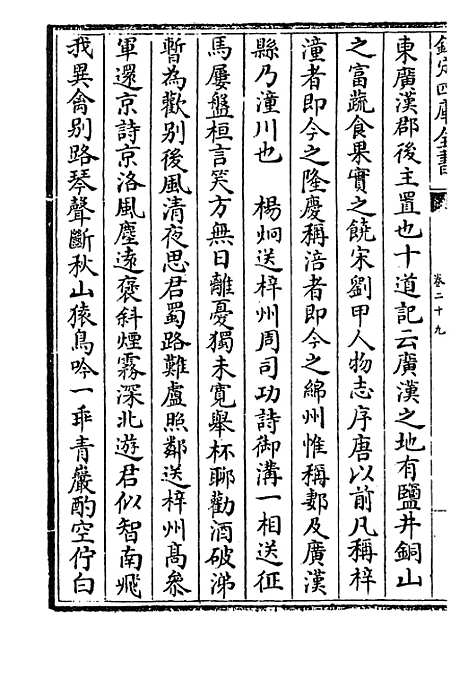 欽定四庫全書
卷二十九
東廣漢郡後主置也十道記云廣漢之地有鹽井銅山
之富蔬食果實之饒宋劉甲人物志序唐以前凡稱梓
潼者即今之隆慶稱涪者即今之綿州惟稱郪及廣漢
縣乃潼川也 楊炯送梓州周司功詩御溝一相送征
馬屢盤桓言笑方無日離憂獨未寛舉杯聊勸酒破涕
暫為歡别後風清夜思君蜀路難盧照鄰送梓州髙參
軍還京詩京洛風塵逺褒斜煙霧深北遊君似智南飛
我異禽别路琴聲斷秋山猿鳥吟一乖青巖酌空佇白